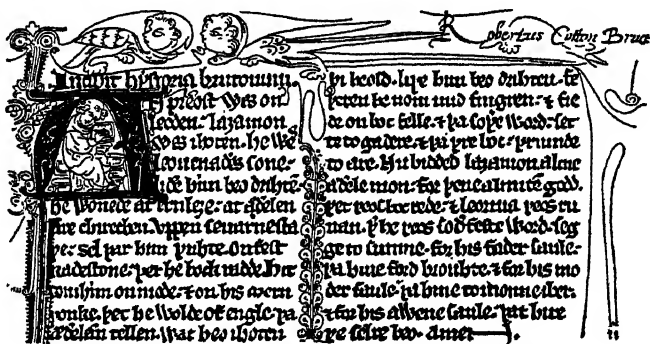 Robertus Cotton Bruceus
Incipit hystoria brutonum.
AN preost wes on
leoden. laȝamon
wes ihoten. he wes
leouenaðes sone.
liðe him beo drihte.
he wonede at ernleȝe. at æðelen
are chirechen. vppen seuarne sta
þe. sel þar him þuhte. on fest
radestone. þer he bock radde. hit
com him on mode. & on his mern
þonke. þet he wolde of engle. þa
æðelæn tellen. wat heo ihoten
he heold. liþe him beo drihten. fe
þeren he nom mid fingren. & fie
de on boc felle. & þa soþe word. set
te to gadere. & þa þre boc. þrumde
to are. Nu bidded laȝamon alcne
æðele mon. for þene almiten godd.
þet þeos boc rede. & leornia þeos ru
nan. þ he þeos soðfeste word. seg
ge to sumne. for his fader saule.
þa hine ford brouhte. & for his mo
der saule. þa hine to monne iber.
& for his awene saule. þat hire
þe selre beo. amen.